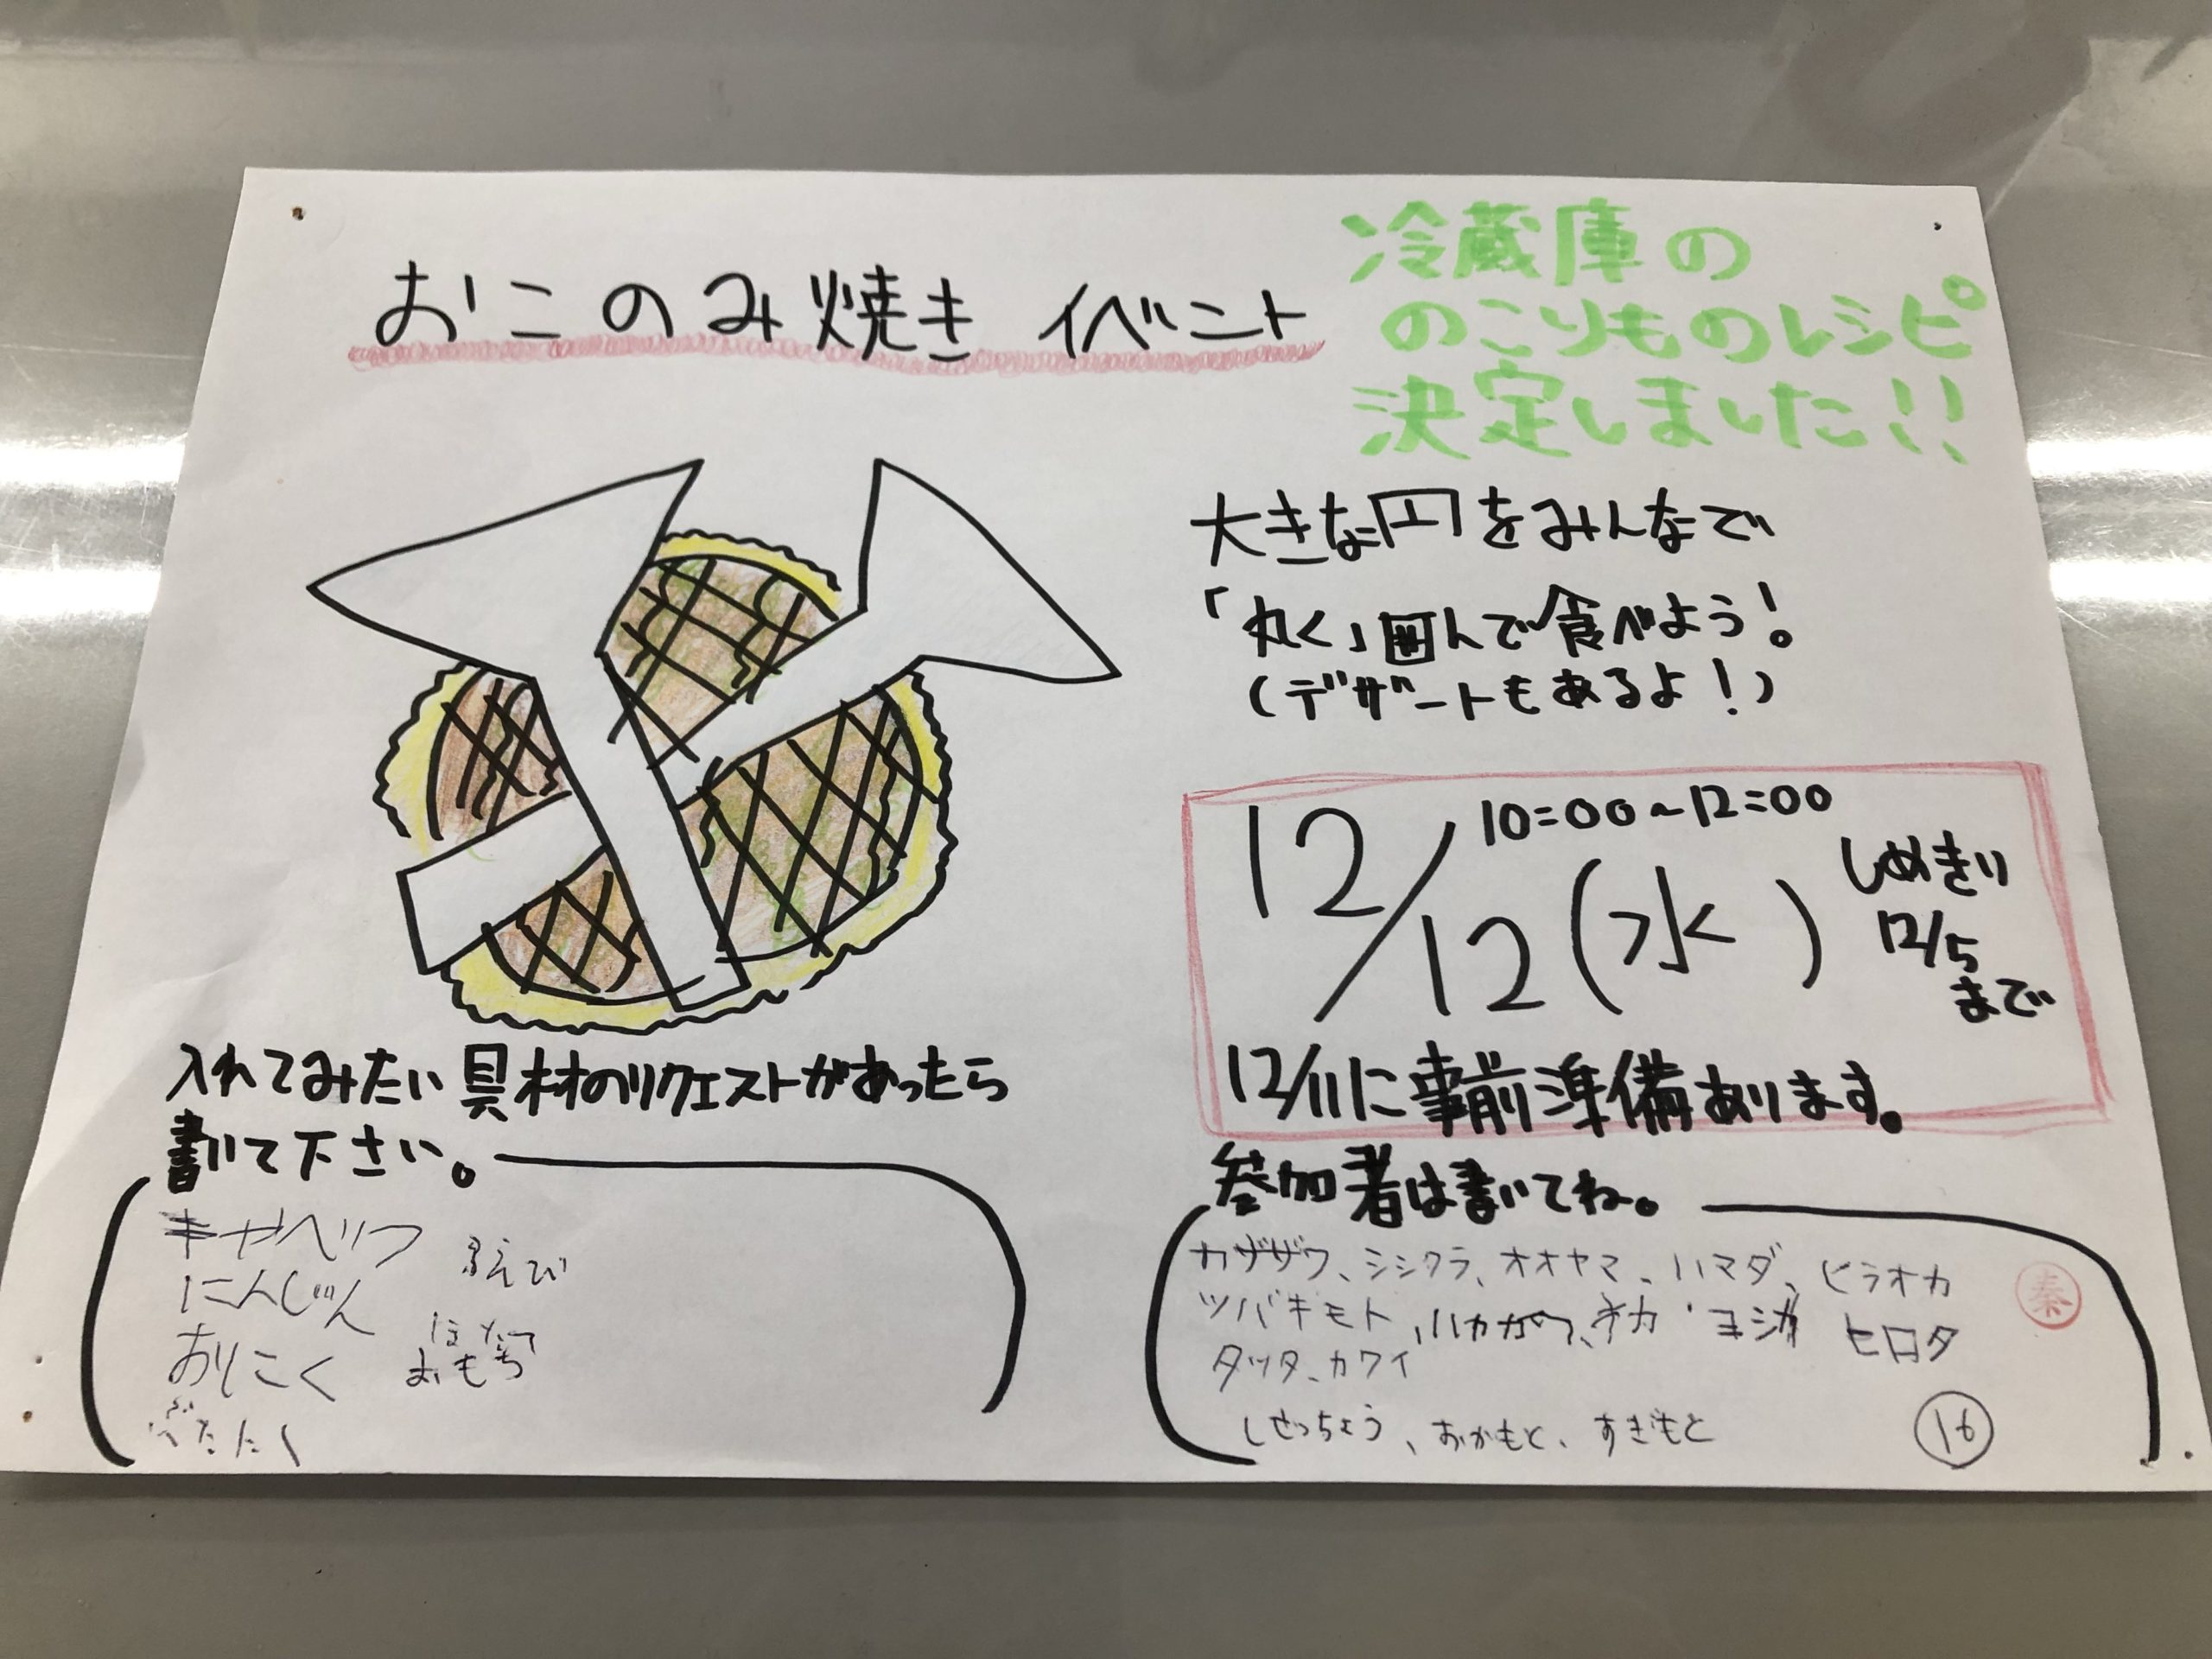 おこのみ焼き イベント
冷蔵庫の
のこりものレシピ
決定しました!!
大きな円をみんなで
「丸く」囲んで食べよう!
(デザートもあるよ!)
10:00~12:00
12/12(水)
しめきり
12/5
まで
12/11に事前準備あります。
入れてみたい具材のリクエストがあったら
書いて下さい。
キャベツ
えび
にんじん
ほたて
おにく
おもち
参加者は書いてね。
カザザワ、シシクラ、オオヤマ、ハマダ、ヒラオカ
秦
ツバキモト
ヒロタ
タツタ、カワイ
しせっちょう、おかもと、すぎもと
16